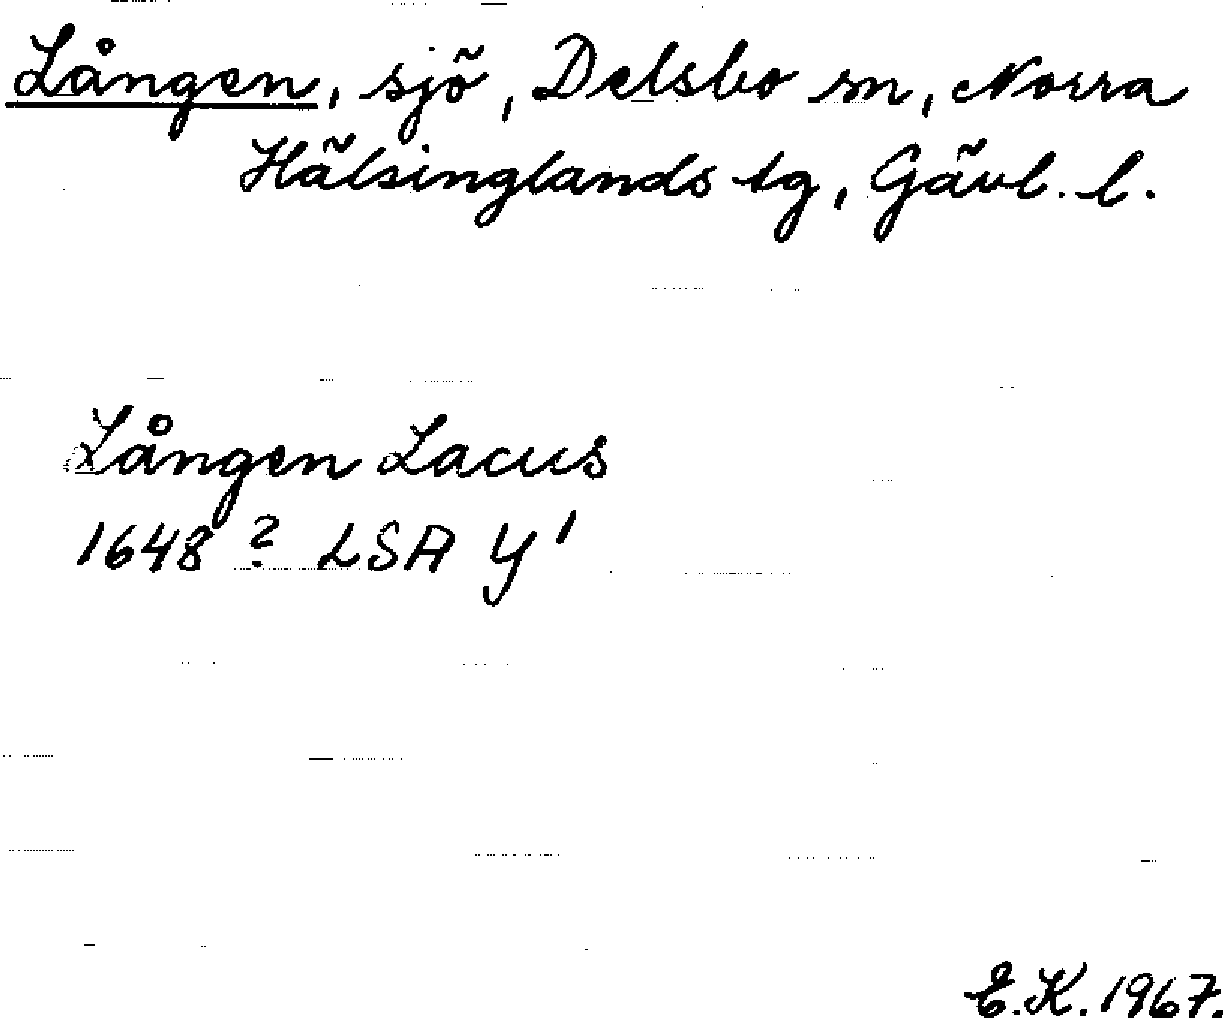 Lången, sjö, Delsbo sn, Norra
Hälsinglands tg, Gävl. l.
Lången Lacus
1648? LSA Y 1
E.K. 1967.